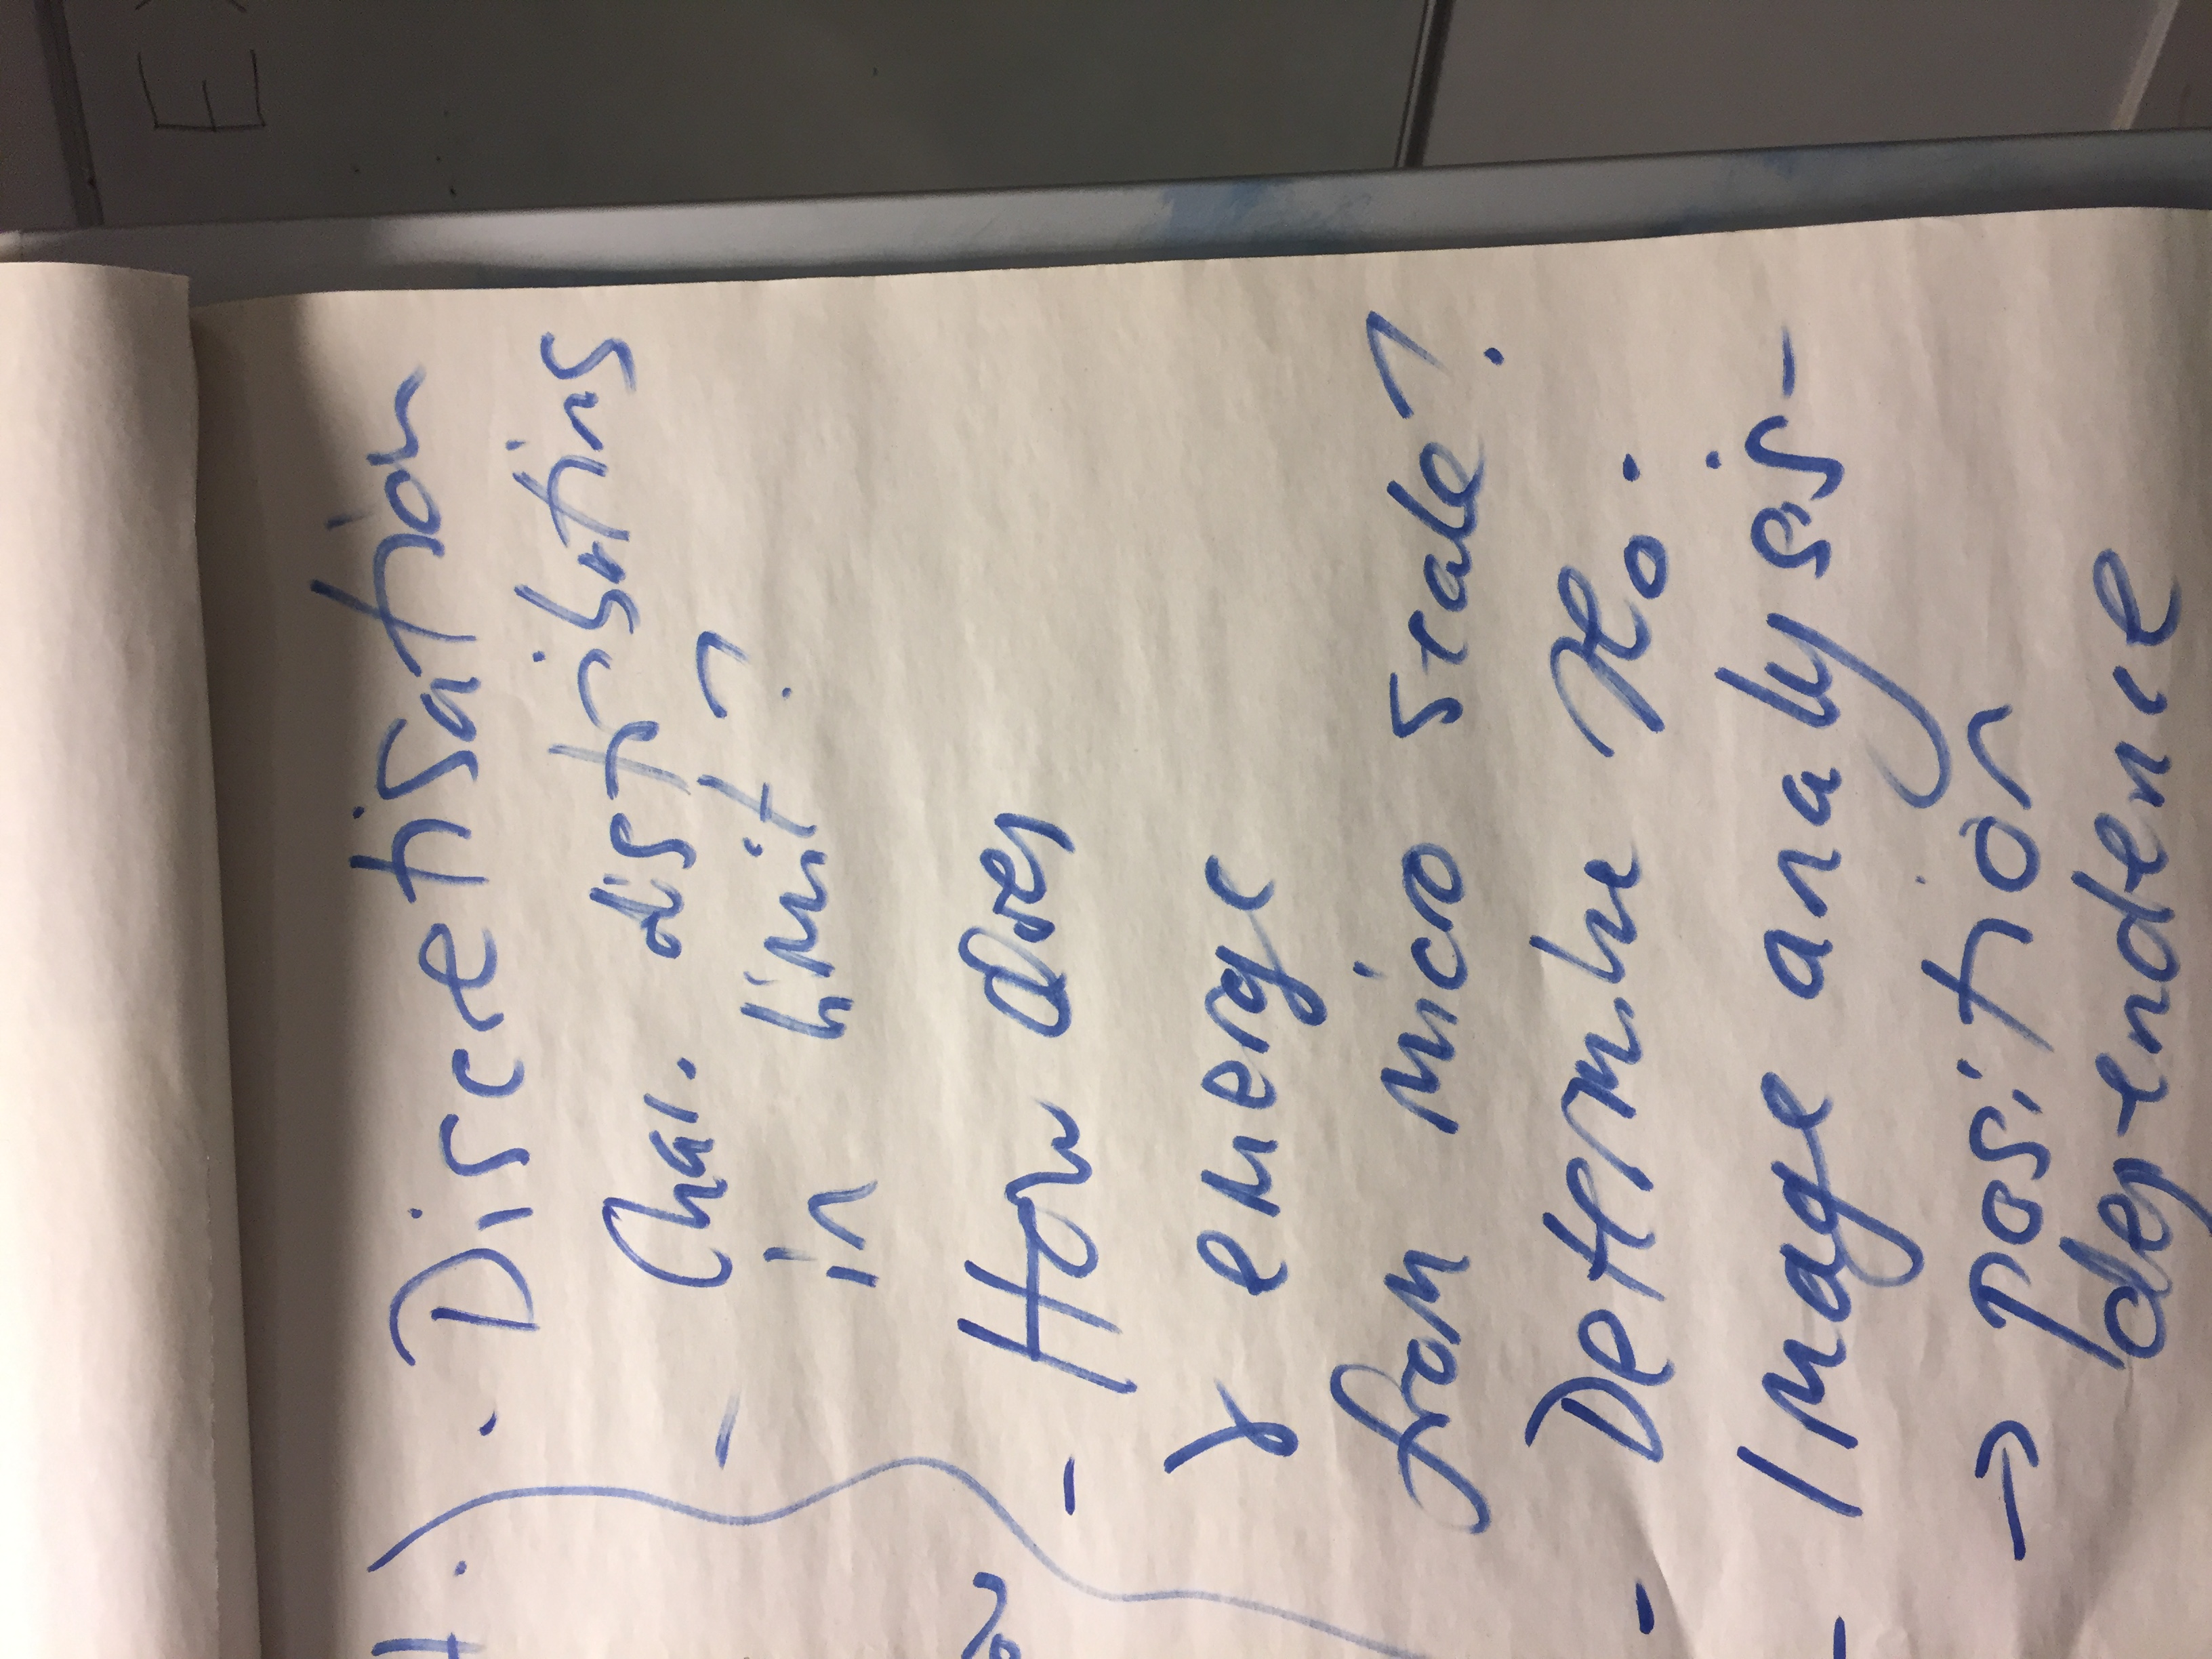 · Discretisation
- Char. distributions
in limit?
- How does
γ emerge
from micro scale?
- Determine
- Image analysis -
→ position
dependence